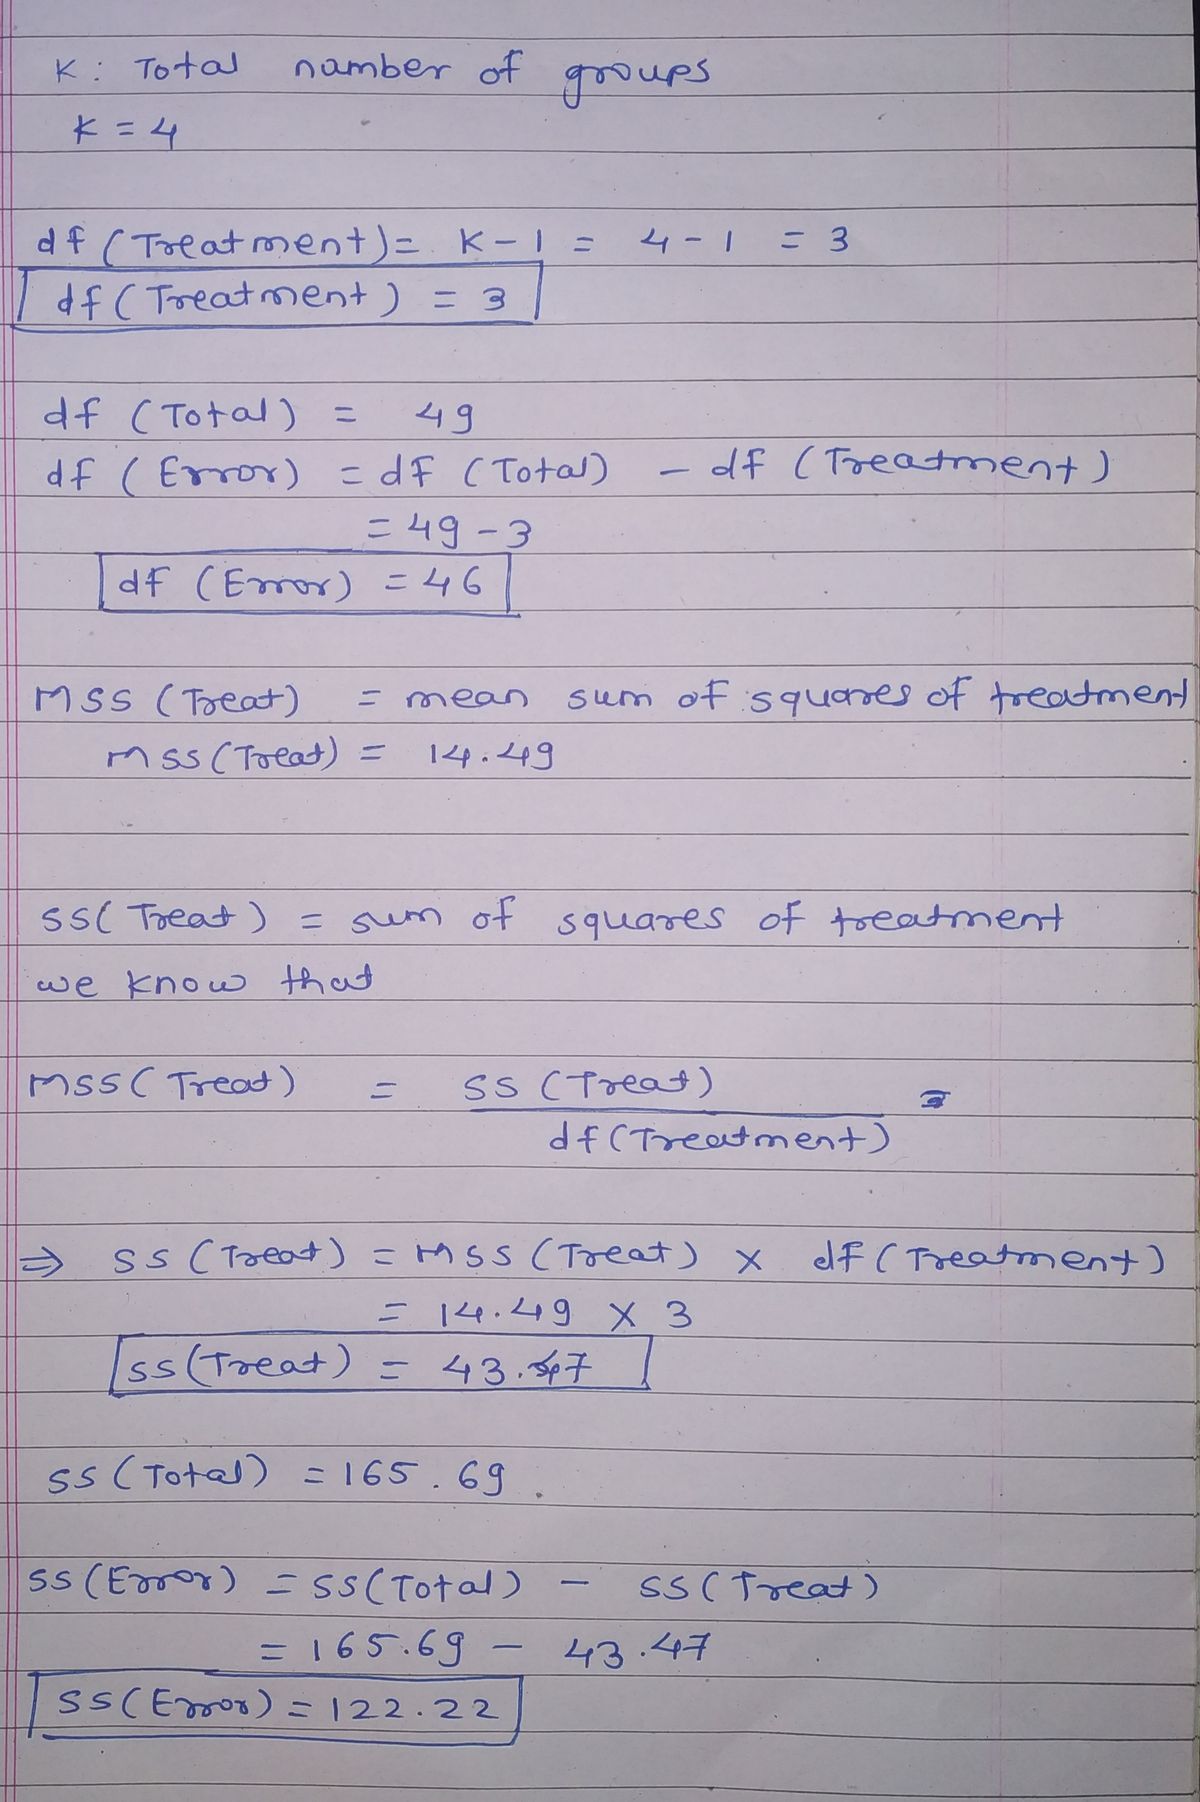 K : Total number of groups
K = 4
df (Treatment) = K - 1 = 4 - 1 = 3
df (Treatment) = 3
df (Total) = 49
df (Error) = df (Total) - df (Treatment)
= 49 - 3
df (Error) = 46
MSS (Treat) = mean sum of squares of treatment
MSS (Treat) = 14.49
SS (Treat) = sum of squares of treatment
we know that
MSS (Treat) = SS (Treat) =
df (Treatment)
⇒ SS (Treat) = MSS (Treat) × df (Treatment)
= 14.49 × 3
SS (Treat) = 43.47
SS (Total) = 165.69.
SS (Error) = SS (Total) - SS (Treat)
= 165.69 - 43.47
SS (Error) = 122.22